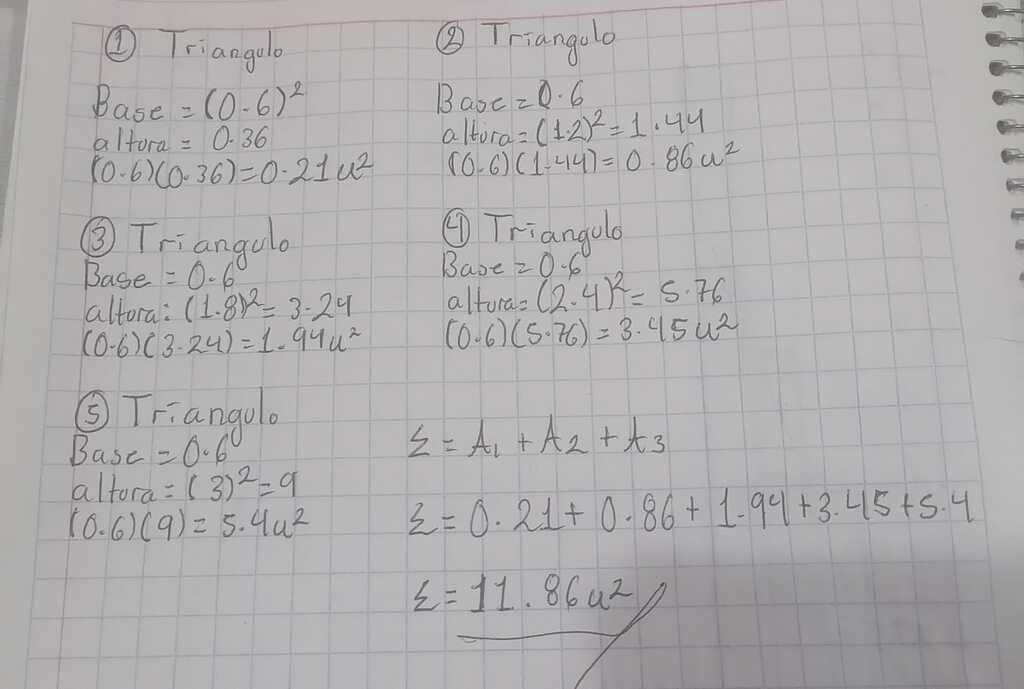 ① Triangulo
Base = (0.6)²
altura = 0.36
(0.6)(0.36)=0.21u²
② Triangulo
Base = 0.6
altura = (1.2)² = 1.44
(0.6)(1.44) = 0.86u²
③ Triangulo
Base = 0.6
altura: (1.8)² = 3.24
(0.6)(3.24) = 1.94u²
④ Triangulo
Base = 0.6
altura = (2.4)² = 5.76
(0.6)(5.76) = 3.45u²
⑤ Triangulo
Base = 0.6
altura = (3)² = 9
(0.6)(9) = 5.4u²
Σ = A₁ + A2 + A3
Σ = 0.21 + 0.86 + 1.94 + 3.45 + 5.4
Σ = 11.86u²